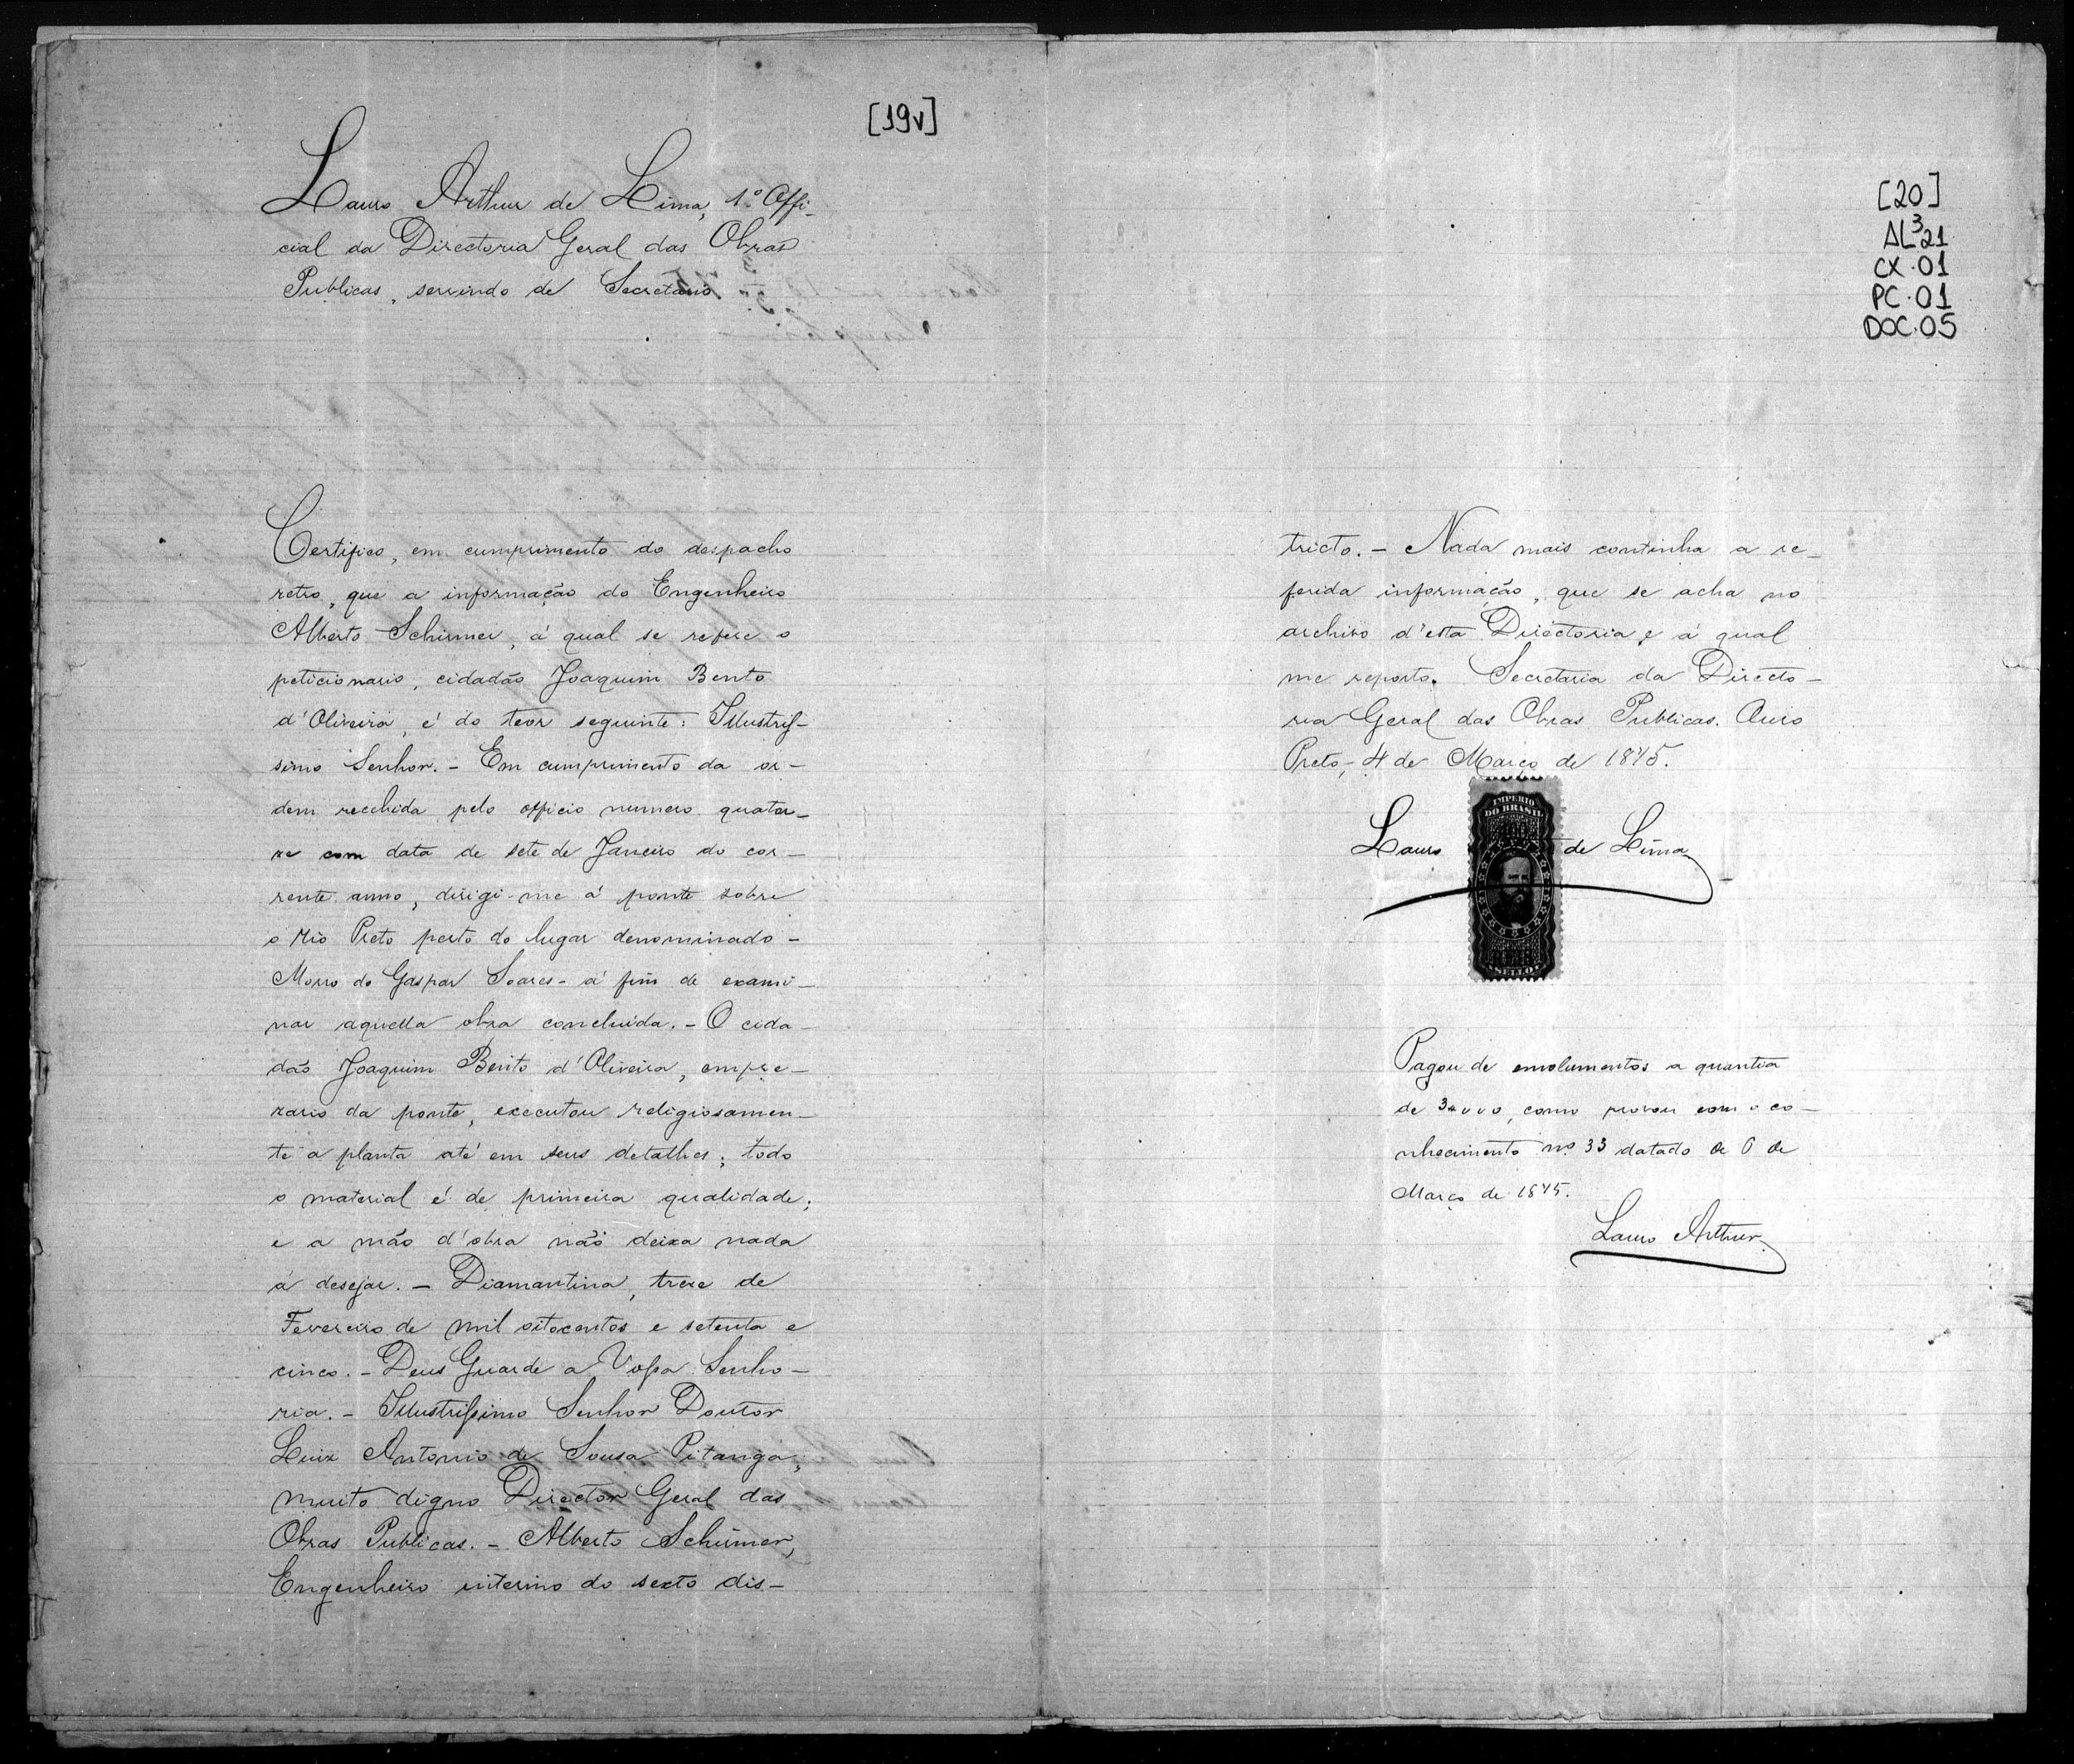 [19v]
Lauro Arthur de Lima, 1º Offi-
cial da Directoria Geral das Obras
Publicas, servindo de Secretario
Certifico, em cumprimento do despacho
retro, que a informação do Engenheiro
Alberto Schirmer, á qual se refere o
peticionario, cidadão Joaquim Bento
d'Oliveira, é do teor seguinte: Illustris-
simo Senhor. - Em cumprimento da or-
dem recebida pelo officio numero quator-
ze com data de sete de Janeiro do cor-
rente anno, dirigi-me á ponte sobre
o Rio Preto perto do lugar denominado -
Morro do Gaspar Soares - á fim de exami-
nar aquella obra concluida. - O cida-
dão Joaquim Bento d'Oliveira, empre-
zario da ponte, executou religiosamen-
te a planta até em seus detalhes; todo
o material é de primeira qualidade;
e a mão d'obra não deixa nada
á desejar. - Diamantina, treze de
Fevereiro de mil oitocentos e setenta e
cinco. - Deus Guarde a Vossa Senho-
ria. - Illustrissimo Senhor Doutor
Luiz Antonio de Sousa Pitanga,
muito digno Director Geral das
Obras Publicas. - Alberto Schirmer,
Engenheiro interino do sexto dis-
[20]
AL³21
CX.01
PC.01
DOC.05
tricto. - Nada mais continha a re-
ferida informação, que se acha no
archivo d'esta Directoria, e á qual
me reporto. Secretaria da Directo-
ria Geral das Obras Publicas. Ouro
Preto, 4 de Março de 1875.
IMPERIO
DO BRASIL
Lauro de Lima
SELLO
Pagou de emolumentos a quantia
de como provou com o co-
nhecimento nº 33 datado de 6 de
Março de 1875.
Lauro Arthur